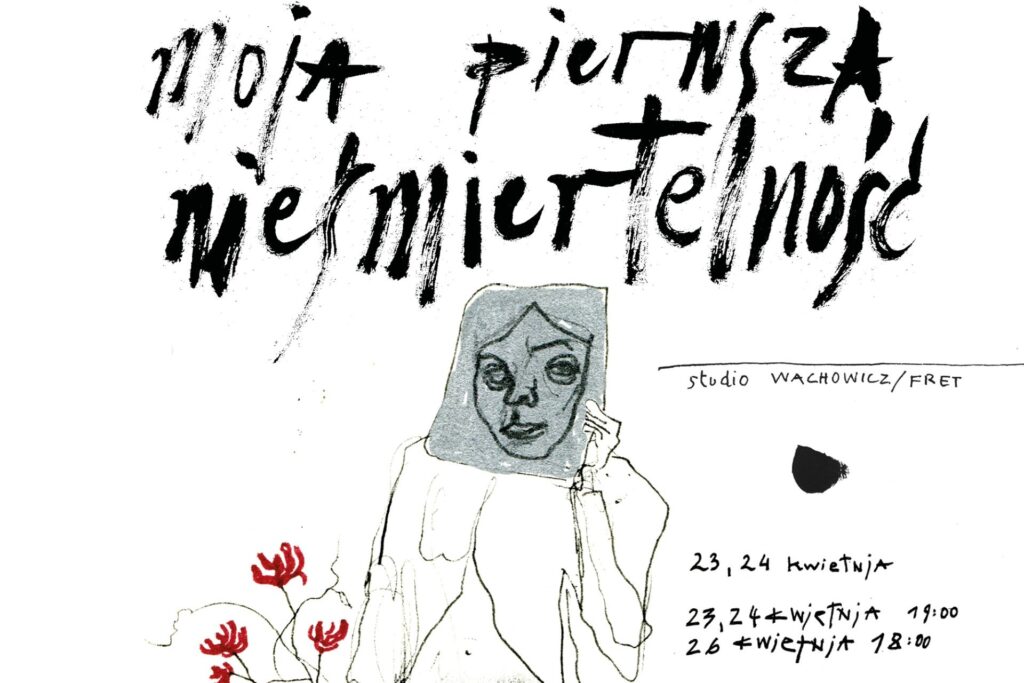 moja pierwsza
nieśmiertelność
studio WACHOWICZ/FRET
23, 24 kwietnja
23, 24 kwietnja 19:00
26 kwietnja 18:00